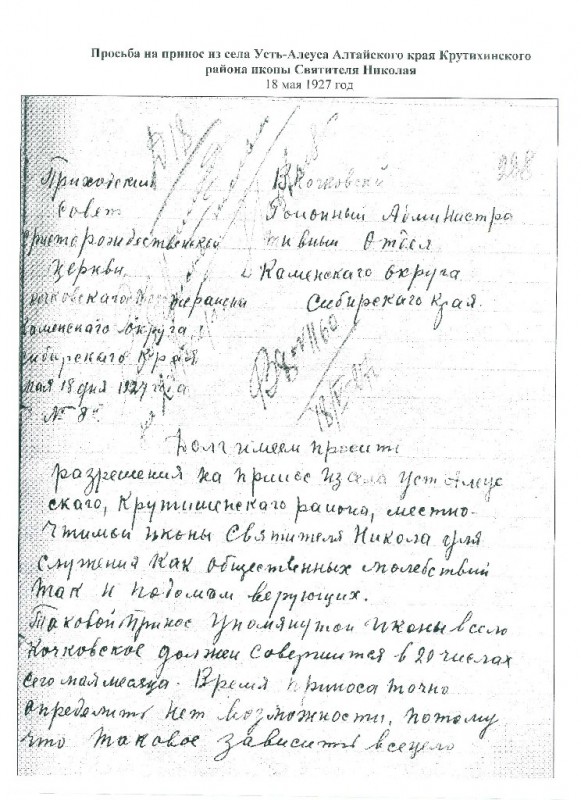 Просьба на принос из села Усть-Алеуса Алтайского края Крутихинского
района иконы Святителя Николая
18 мая 1927 год
228
Приходский
Совет
Христорождественской
Церкви
Кочковского
Каменского Округа
Сибирского Края
мая 18 дня 1927 года
№ 8
В Кочковский
Районный Администра
тивный Отдел
Каменского округа
Сибирского края.
Долг имеем просить
разрешения на принос из села Уст Алеус
скаго, Крутишенскаго района, местно-
чтимой иконы Святителя Никола для
служения как общественных молебствий
так и по домам верующих.
Таковой принос упомянутой иконы в село
Кочковское должен совершится в 20 числах
сего мая месяца. Время приноса точно
определить нет возможности, потому
что таковое зависить всецело